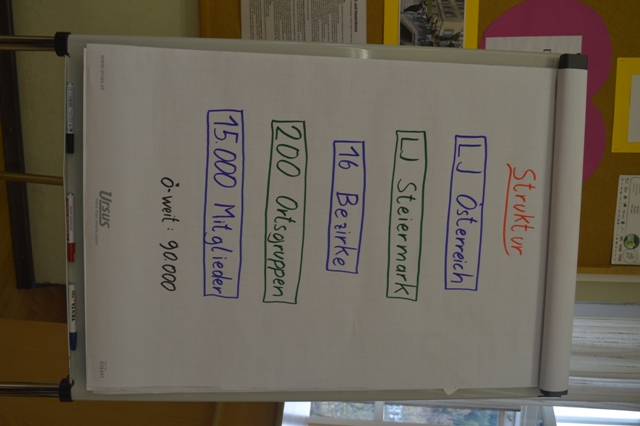 Struktur
LJ Österreich
LJ Steiermark
16 Bezirke
200 Ortsgruppen
15.000 Mitglieder
Ö-weit: 90.000
Ursus